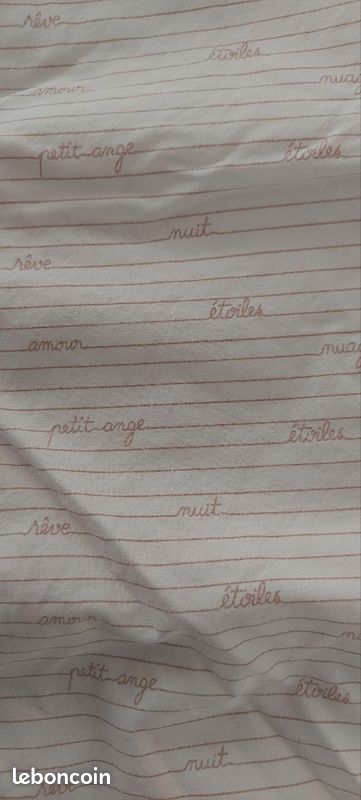 rêve
étoiles
nuag
amour
petit ange
étoiles
nuit
rêve
étoiles
amour
nuag
petit ange
étoiles
nuit
rêve
étoiles
amour
n
petit ange
étoiles
nuit
leboncoin
rêve